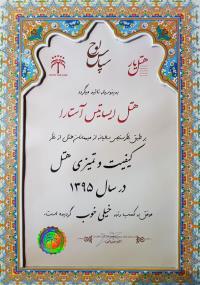 سپاس
هتل‌یار
بدینوسیله تائید می‌گردد
هتل ایساتیس آستارا
بر طبق نظرسنجی سالیانه از میهمانان هتل از نظر
کیفیت و تمیزی هتل
در سال ۱۳۹۵
موفق به کسب رتبه خیلی خوب گردیده است.